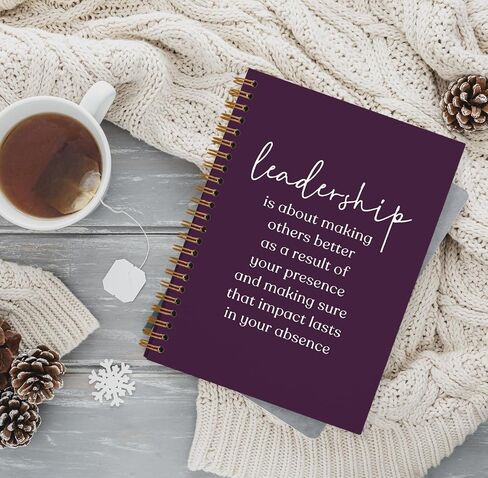 leadership
is about making
others better
as a result of
your presence
and making sure
that impact lasts
in your absence